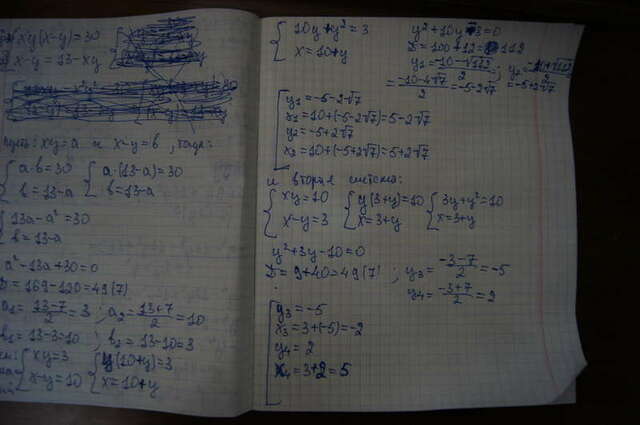 xy(x-y)=30
x-y=13-xy
пусть: xy=a и x-y=b, тогда:
{a·b=30 {a·(13-a)=30
{b=13-a {b=13-a
{13a-a²=30
{b=13-a
a²-13a+30=0
D=169-120=49(7)
a₁=(13-7)/2=3; a₂=(13+7)/2=10
b₁=13-3=10; b₂=13-10=3
{xy=3 {y(10+y)=3
{x-y=10 {x=10+y
{10y+y²=3
{x=10+y
y²+10y-3=0
D=100+12=112
y₁=(-10-√112)/2; y₂=(-10+√112)/2
=(-10-4√7)/2=-5-2√7 =-5+2√7
[y₁=-5-2√7
x₁=10+(-5-2√7)=5-2√7
y₂=-5+2√7
x₂=10+(-5+2√7)=5+2√7
и вторая система:
{xy=10 {y(3+y)=10 {3y+y²=10
{x-y=3 {x=3+y {x=3+y
y²+3y-10=0
D=9+40=49(7); y₃=(-3-7)/2=-5
y₄=(-3+7)/2=2
[y₃=-5
x₃=3+(-5)=-2
y₄=2
x₄=3+2=5